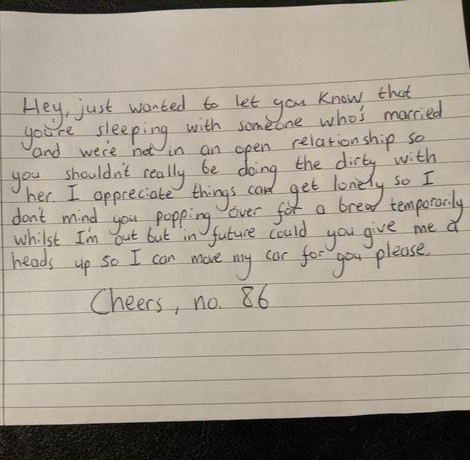 Hey, just wanted to let you know that
you're sleeping with someone who's married
and we're not in an open relationship so
you shouldn't really be doing the dirty with
her. I appreciate things can get lonely so I
don't mind you popping over for a brew temporarily
whilst I'm out but in future could you give me a
heads up so I can move my car for you please.
Cheers, no. 86